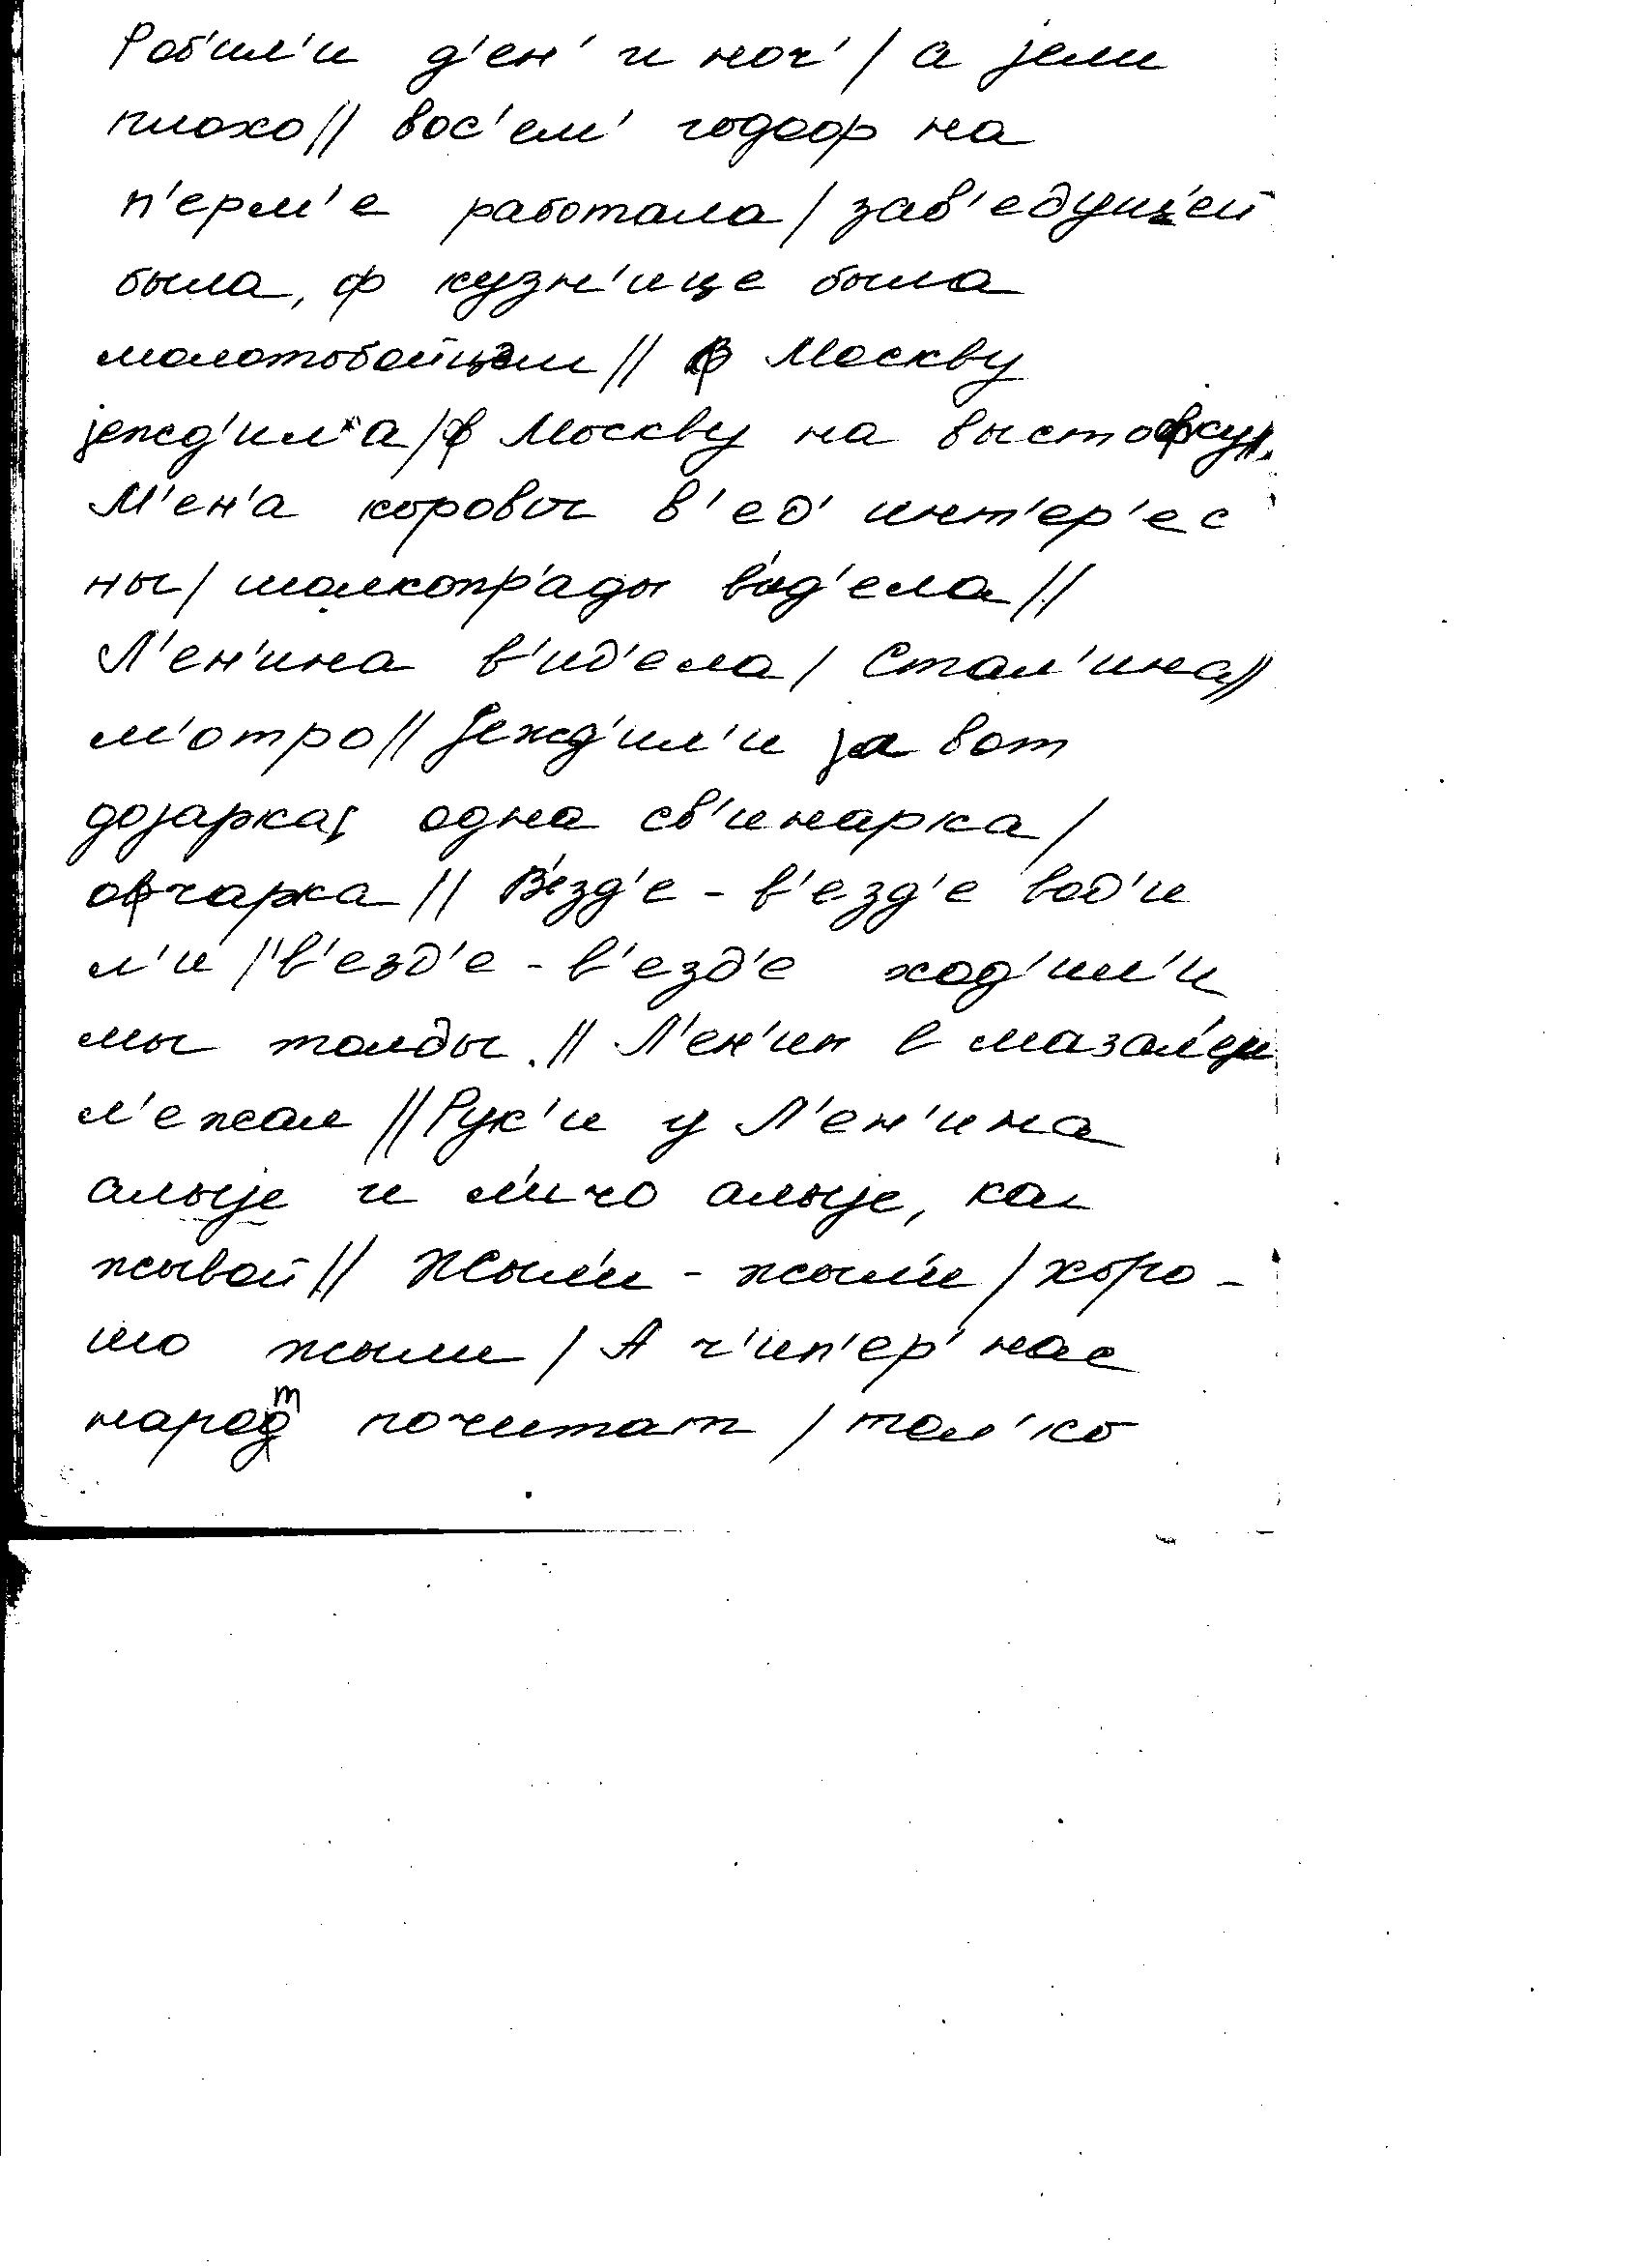 Роб'ил'и д'ен' и ноч' / а јели
плохо // вос'ем' годоф на
п'ерм'е работала / зав'едущ'ей
была, ф кузн'ице была
молотобойцэм // ф Москву
јежд'ил а / ф Москву на выстофку //
М'ен'а коровы в'ед' инт'ер'ес
ны / шолкопр'ады в'ид'ела //
Л'ен'ина в'ид'ела / Стал'ина //
м'отро // Јежд'ил'и ја вот
дојарка, одна св'инарка /
офчарка // В'езд'е - в'езд'е вод'и
л'и // в'езд'е - в'езд'е ход'ил'и
мы толды. // Л'ен'ин в мазол'еи
л'ежал // Рук'и у Л'ен'ина
алыје и л'ичо алыје, кал
жывой // Жыл'и - жыл'и / хоро -
шо жыли / А ч'ип'ер' нас
народт почитат / тол'ко